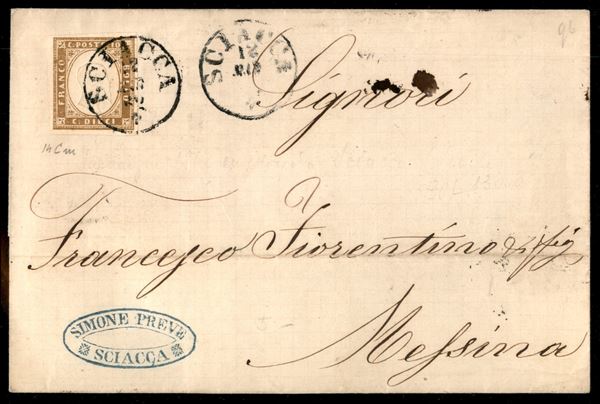 C. POSTE
FRANCO
C. DIECI
SCIACCA
SCIACCA
12
96
Signori
14 C m
Francesco Fiorentino & fig
Messina
SIMONE PREVE
SCIACCA